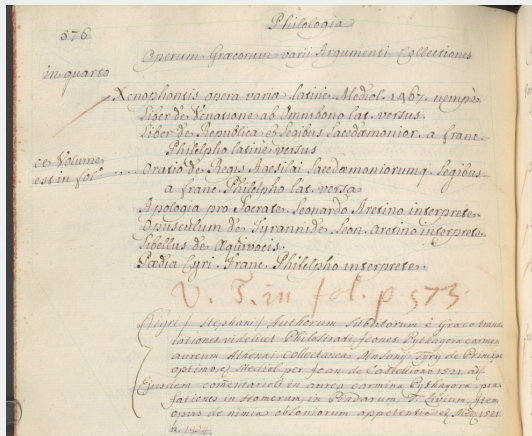 Philologia
576
Operum Græcorum varii Argumenti Collectiones
in quarto
Xenophontis opera varia latinè Mediol. 1467. nempè
Liber de Venatione ab Omnibono lat. versus.
Liber de Republica et Legibus Lacedæmonior. a franc.
Philelpho latinè versus
ce Volume
est in fol.
Oratio de Regis Agesilai Lacedæmoniorumq. legibus
a franc. Philelpho lat. versa
Apologia pro Socrate Leonardo Aretino interprete.
Opusculum de Tyrannide Leon. Aretino interprete.
Libellus de Æquivocis.
Pædia Cyri Franc. Philelpho interprete.
V. T. in fol. p 573.
Stephani Authorum Subditorum è Græco
lationes videlicet Philostrati Icones Pythagoræ carmen
aureum Athenæi Collectanea Musonij Tyrij de Principe
optimo Mediol per Joan de Castellione 1521.
Ejusdem comentarioli in aurea carmina Pythagoræ præ-
fationes in Homerum, in Pindarum, T. Livium, Item
de nimia obsoniorum appetentia 1521.